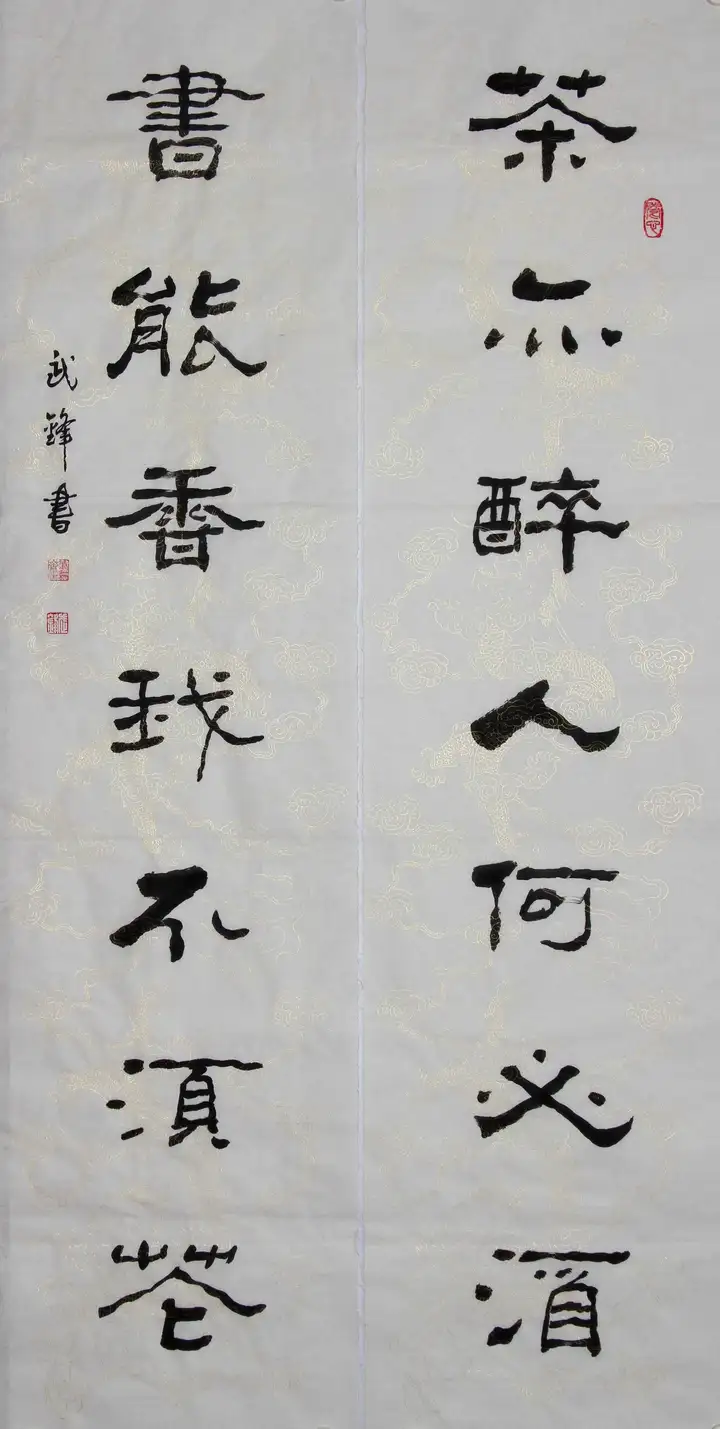 茶亦醉人何必酒
書能香我不須花
武鋒書